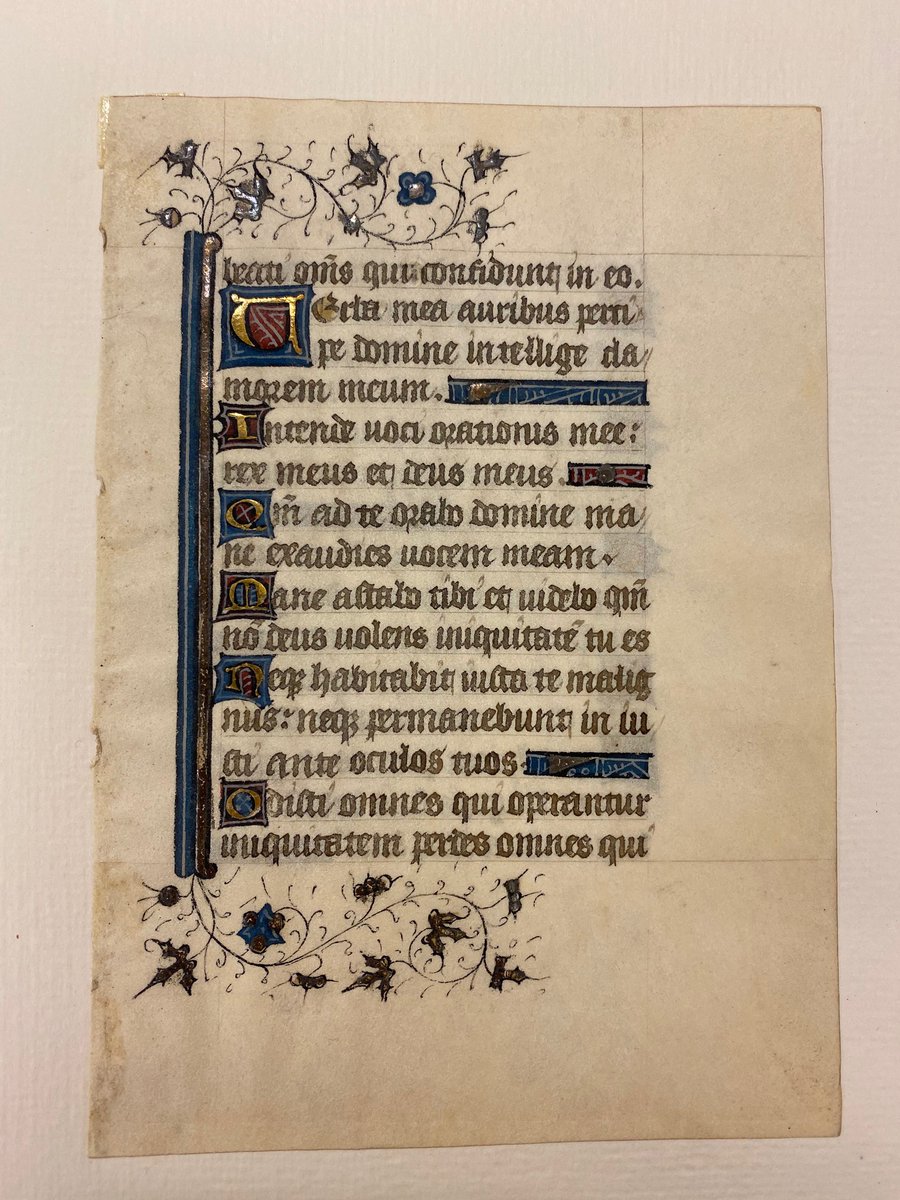 beati om̄s qui confidunt in eo.
Verba mea auribus perci
pe domine intellige cla
morem meum.
Intende uoci orationis mee:
rex meus et deus meus.
Qm̄ ad te orabo domine ma
ne exaudies uocem meam.
Mane astabo tibi et uidebo qm̄
nō deus uolens iniquitatē tu es
Neqꝫ habitabit iuxta te malig
nus: neqꝫ permanebunt in iu
sti ante oculos tuos
Odisti omnes qui operantur
iniquitatem perdes omnes qui